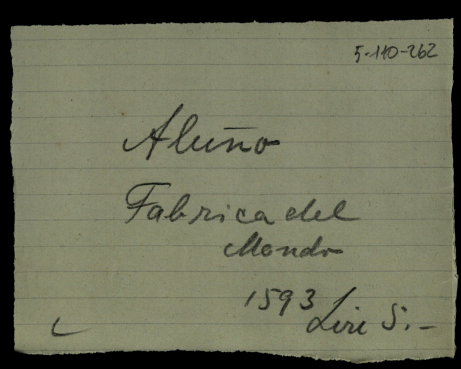 5-110-262
Aluño
Fabrica del
Mondo
1593
Lire 5.-